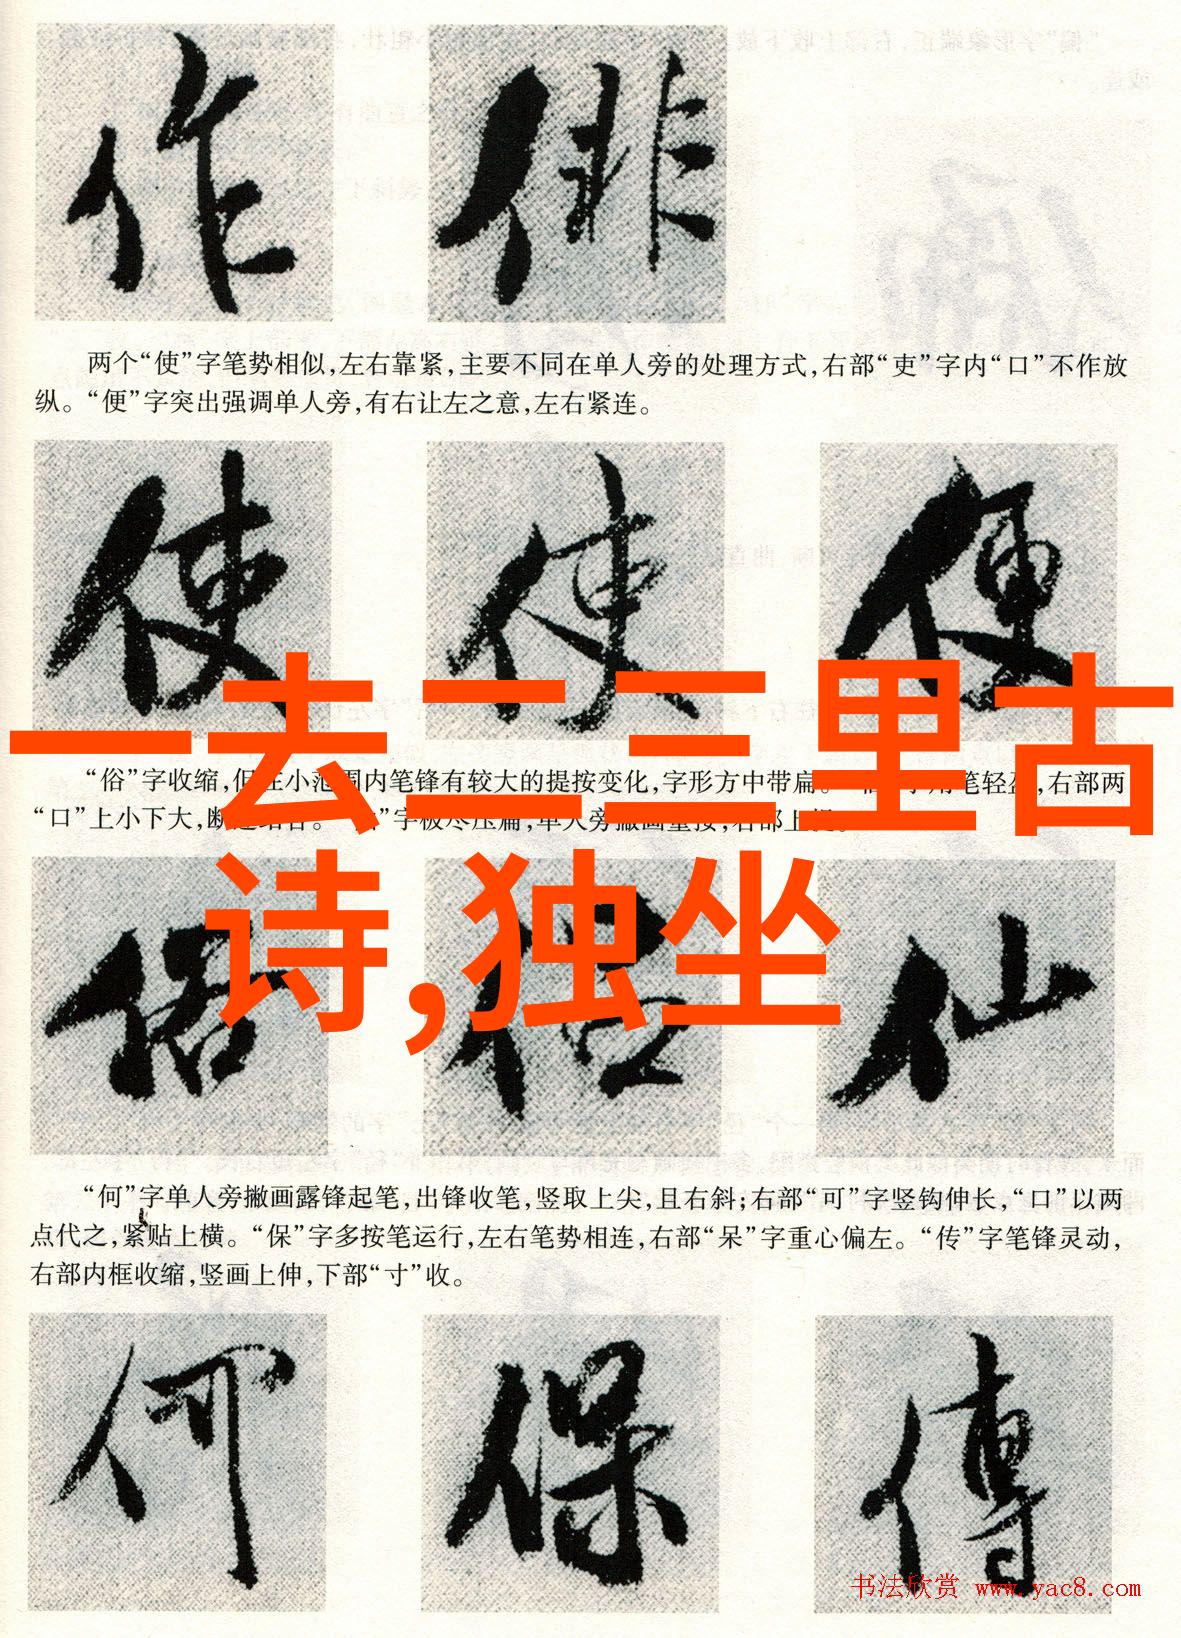 作 俳
两个“使”字笔势相似,左右靠紧,主要不同在单人旁的处理方式,右部“吏”字内“口”不作放
纵。“便”字突出强调单人旁,有右让左之意,左右紧连。
使 使 便
一去二三里古
“俗”字收缩,但在小范围内笔锋有较大的提按变化,字形方中带扁。 笔轻盈,右部两
“口”上小下大,断 字极尽压扁,单人旁撇画重按,右部上
诗,独坐
俗 仙
“何”字单人旁撇画露锋起笔,出锋收笔,竖取上尖,且右斜;右部“可”字竖钩伸长,“口”以两
点代之,紧贴上横。“保”字多按笔运行,左右笔势相连,右部“呆”字重心偏左。“传”字笔锋灵动,
右部内框收缩,竖画上伸,下部“寸”收。
何 保 傳
书法欣赏 www.yac8.com